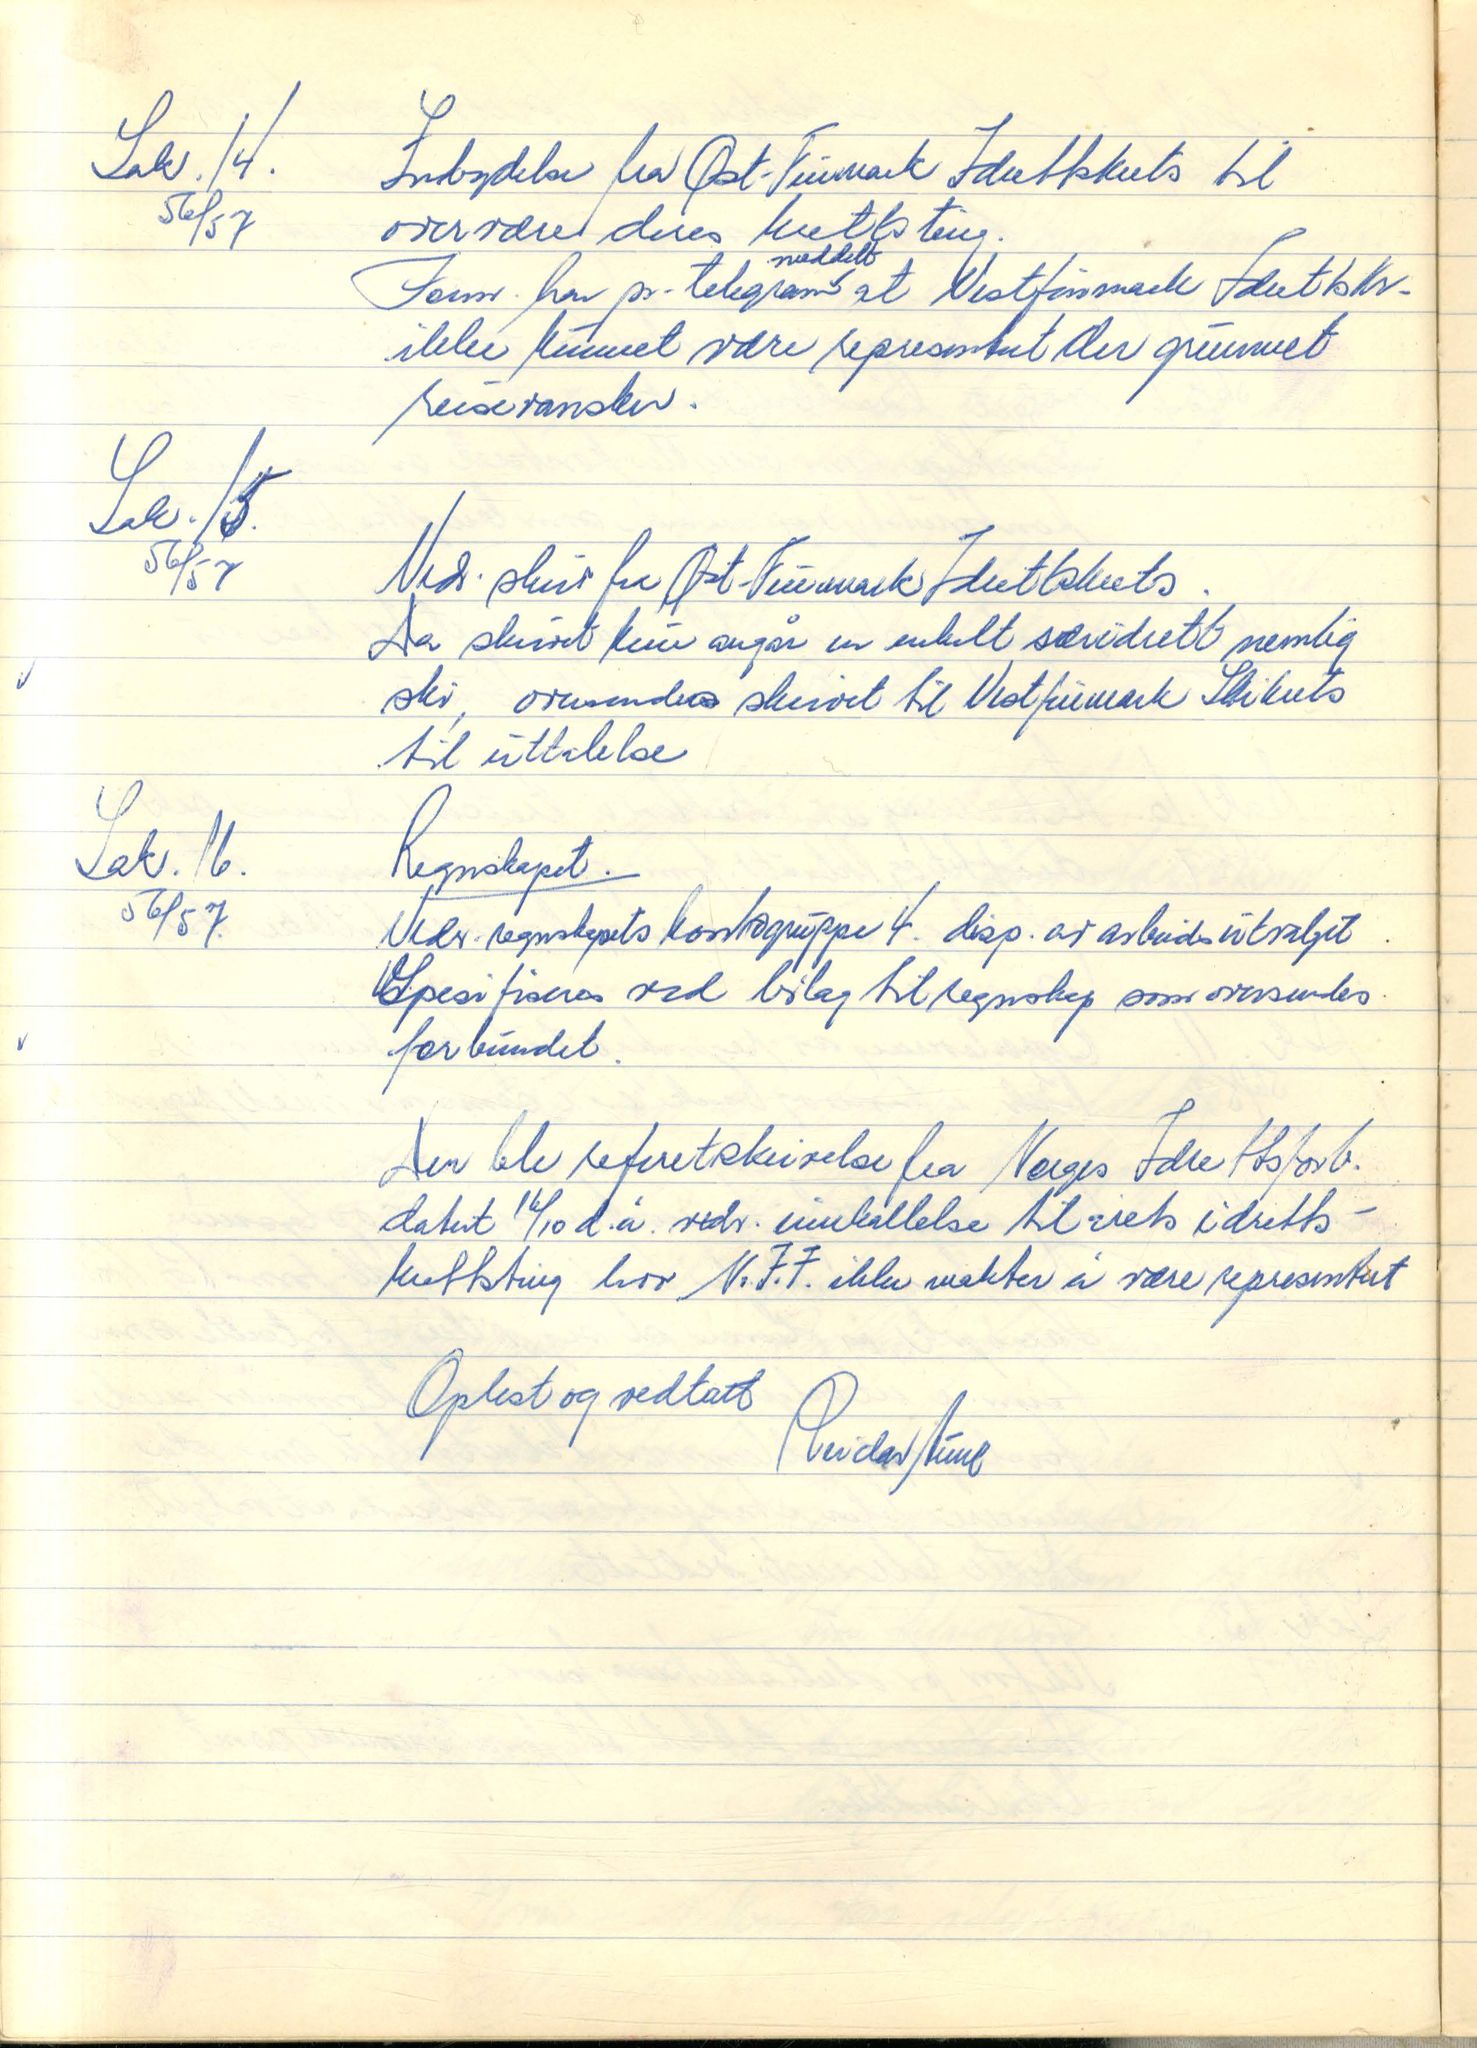 Sak. 14.
56/57
Indbydelse fra Øst-Finnmark Idrettskrets til
overvære deres kretsting.
Form. har pr. telegram meddelt at Vestfinnmark Idrettskr.
ikke kunnet være representert der grunnet
reisevansker.
Sak. 15.
56/57
Vedr. skriv fra Øst-Finnmark Idrettskrets.
Da skrivet kun angår en enkelt særidrett nemlig
ski, oversendes skrivet til Vestfinnmark Skikrets
til uttalelse
Sak. 16.
56/57.
Regnskapet.
Vedr. regnskapets kontogruppe 4. disp. av arbeidsutvalget.
Spesifiseres ved bilag til regnskap som oversendes
forbundet.
Der ble referet skrivelse fra Norges Idrettsforb.
datert 16/10 d.å. vedr. innkallelse til årets idretts-
kretsting hvor N.I.F. ikke makter å være representert
Oplest og vedtatt
Reidar